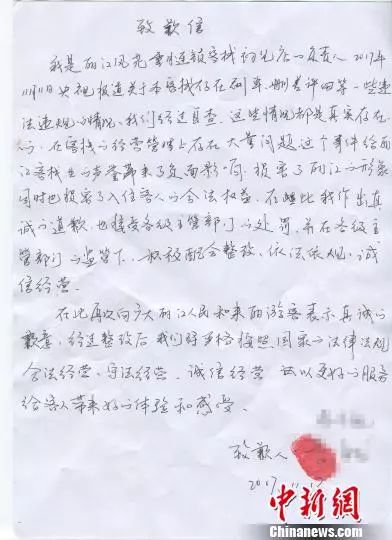 致歉信
我是丽江风花雪月连锁客栈初见店负责人2017年
11月11日央视报道关于本客栈存在刷单、删差评回等一些违
法违规的情况，我们经过自查，这些情况都是真实存在
的，在客栈的经营管理上存在大量问题这个事件给丽
江客栈的声誉带来了负面影响，损害了丽江的形象
同时也损害了入住客人的合法权益，在此我作出真
诚的道歉，也接受各级主管部门的处罚，并在各级主
管部门的监管下，积极配合整改、依法依规、诚
信经营。
在此再次向广大丽江人民和来丽游客表示真诚的
歉意，经过整改后我们将严格按照国家的法律法规
合法经营、守法经营、诚信经营，以更好的服务
给客人带来好的体验和感受。
致歉人
2017.11.
中新网
www.chinanews.com